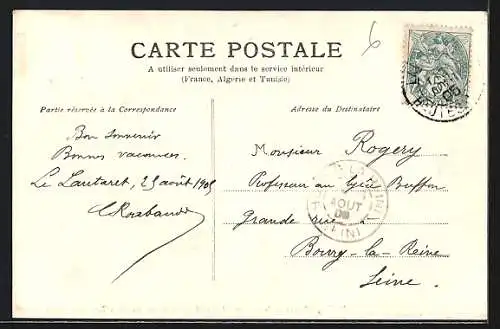 CARTE POSTALE
A utiliser seulement dans le service intérieur
(France, Algérie et Tunisie)
Partie réservée à la Correspondance
Adresse du Destinataire
6
Bon souvenir
Bonnes vacances.
Le Lautaret, 25 août 1905
Monsieur Rogery
Professeur au lycée Buffon
Grande rue
Bourg-la-Reine
Seine.
AOUT